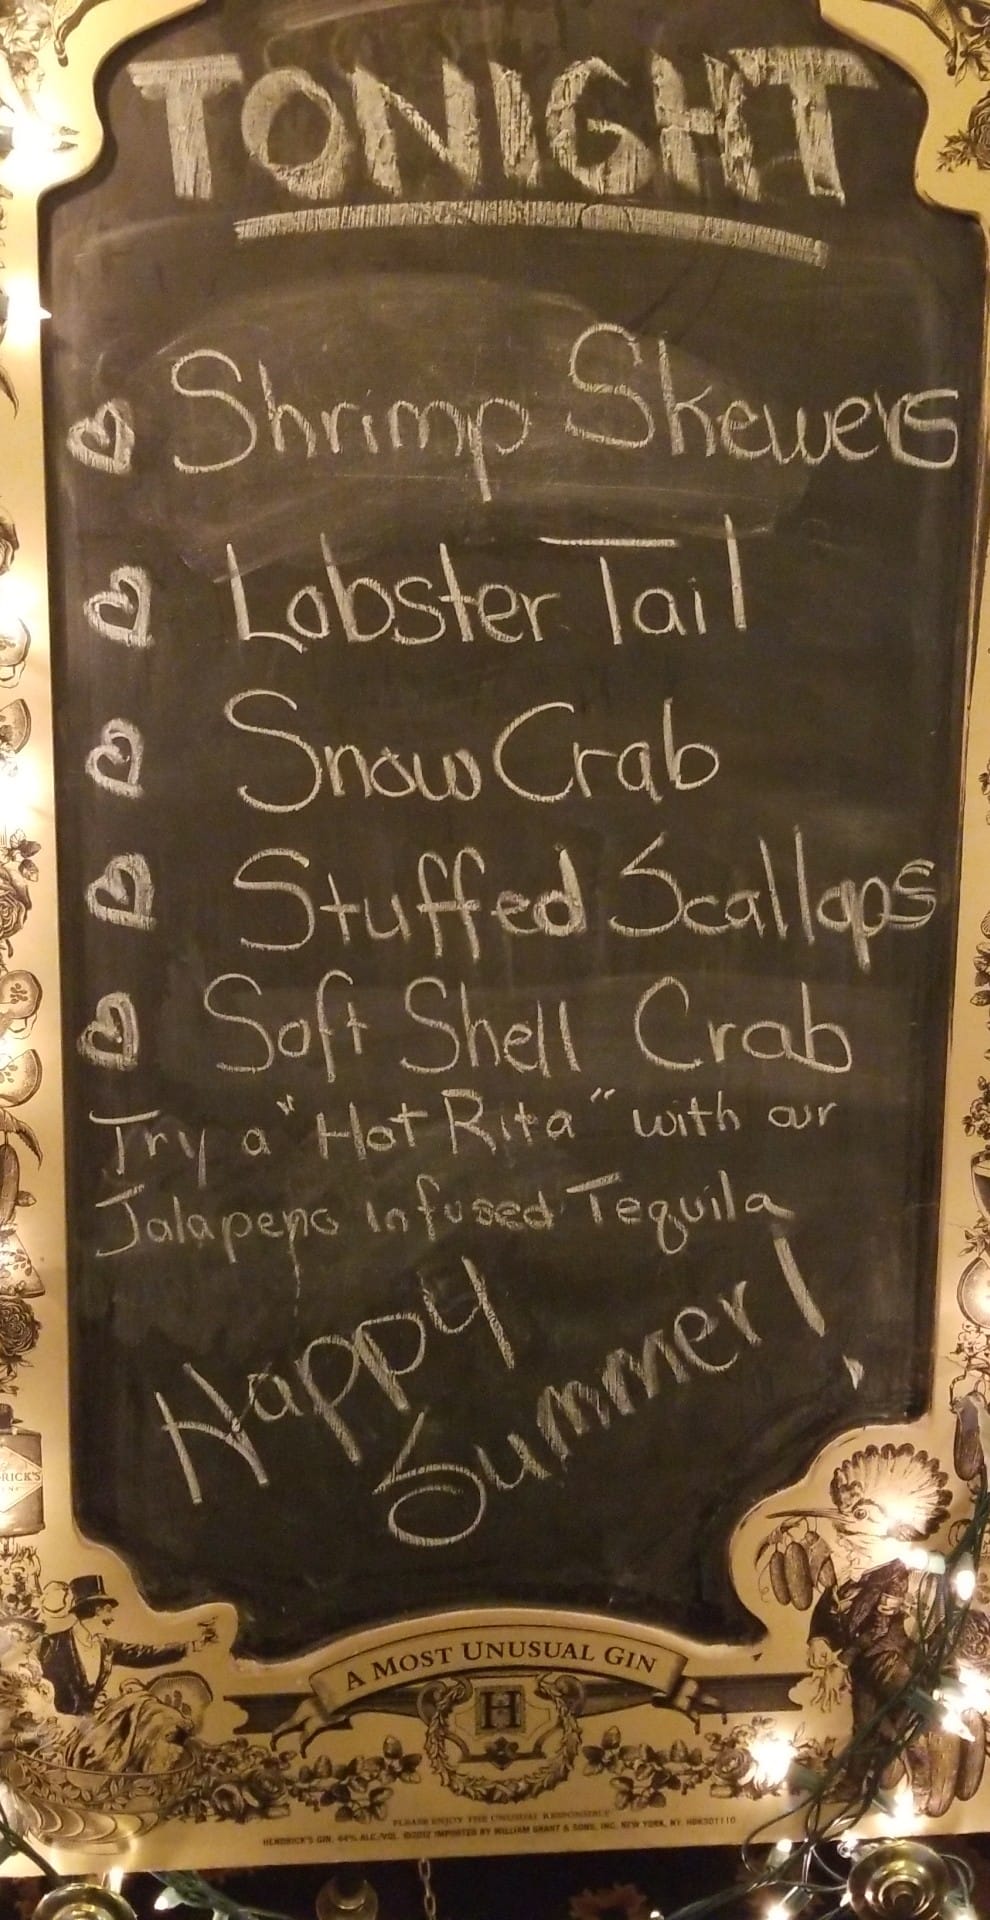 TONIGHT
Shrimp Skewers
Lobster Tail
Snow Crab
Stuffed Scallops
Soft Shell Crab
Try a "Hot Rita" with our
Jalapeno Infused Tequila
Happy
Summer!
RICK'S
A MOST UNUSUAL GIN
H
PLEASE ENJOY THE UNUSUAL RESPONSIBLY
HENDRICK'S GIN, 44% ALC./VOL. ©2012 IMPORTED BY WILLIAM GRANT & SONS, INC. NEW YORK, NY.